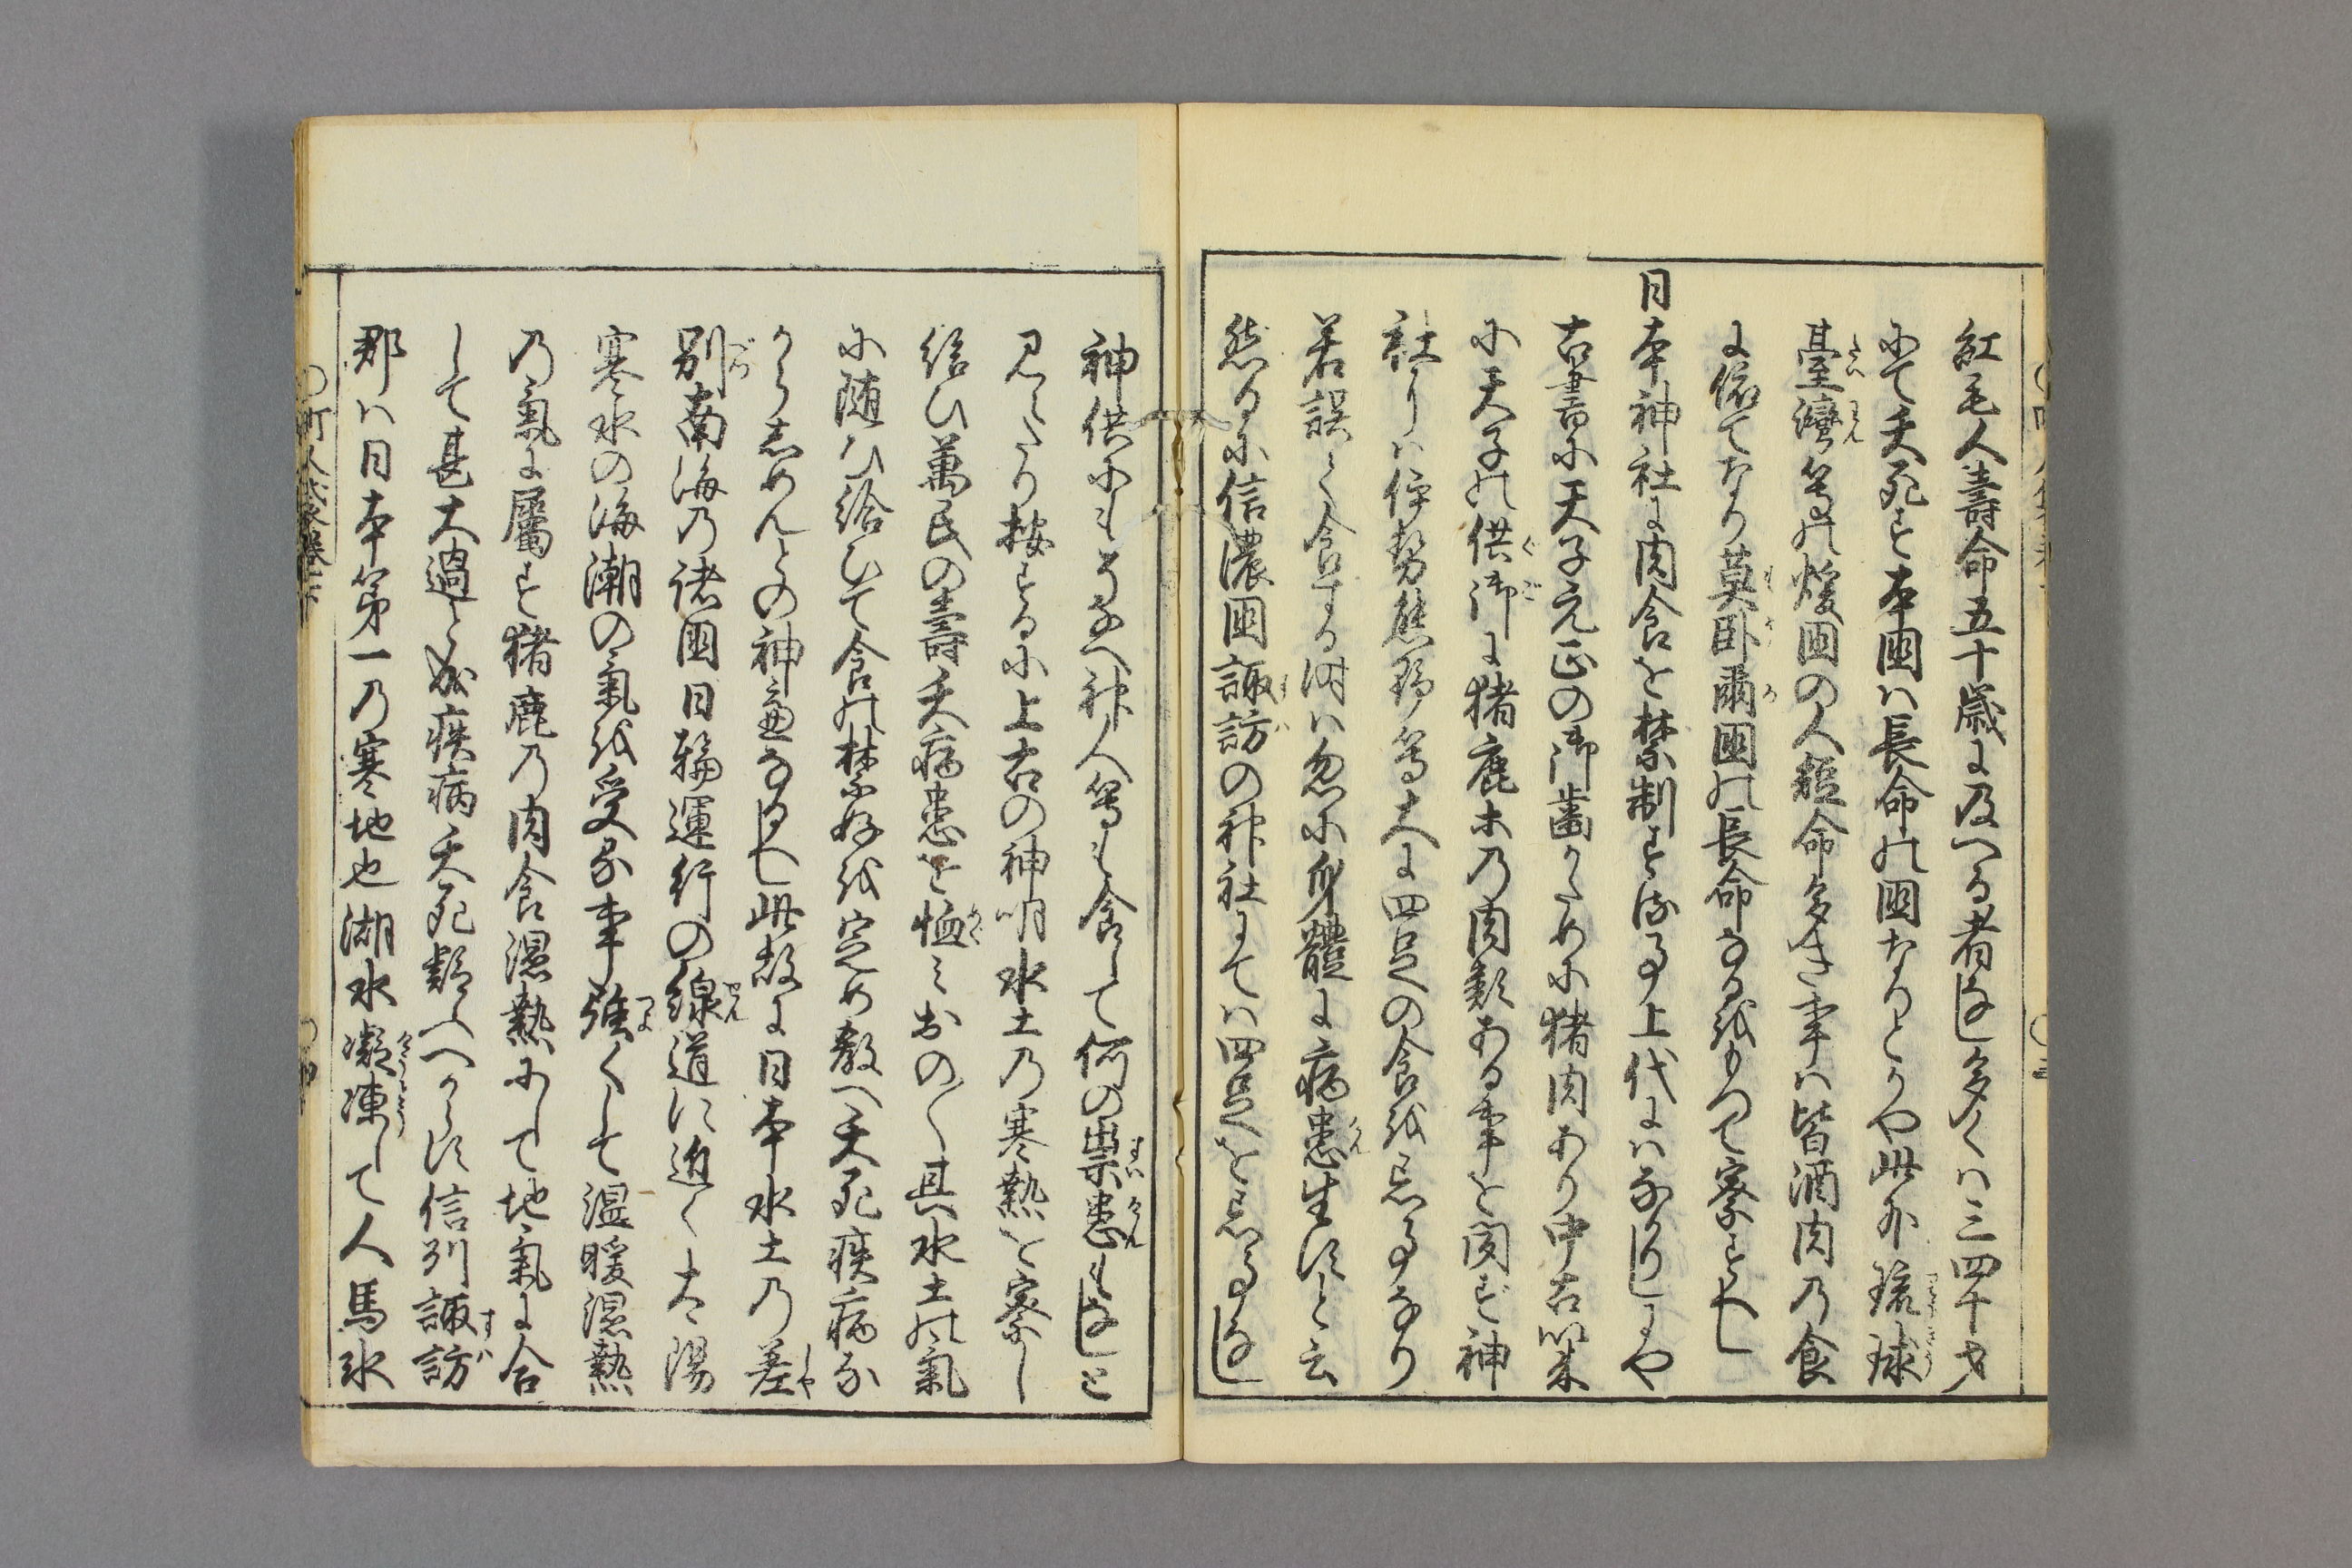 紅毛人壽命五十歳に及へる者なし多くは三四十才
にて夭死す本國は長命の國なりとかや此外琉球
臺灣等の煖國の人短命多き事は皆酒肉の食
に依てなり莫臥爾國の長命なるをもつて察すへし
日本神社に肉食を禁制する事上代にはなかりしにや
古書に天子元正の御歯かために猪肉あり中古以来
に天子の供御に猪鹿ホの肉類ある事を聞ず神
社りは伊勢熊野等大に四足の食を忌事なり
若誤て食する時は忽に身體に病患生すと云
然るに信濃國諏訪の神社にては四足を忌事なし
神供にもそなへ神人等も食して何の祟患もなしと
見えたり按するに上古の神明水土の寒熱を察し
給ひ萬民の壽夭病患を恤みおの〱其水土の氣
に随ひ給ひて食の禁好を定め教へ夭死疾病な
からしめんとの神慮なるへし此故に日本水土の差
別南海の諸國日輪運行の線道に近く太陽
寒水の海潮の氣を受る事強くして温暖濕熱
の氣に屬す猪鹿の肉食濕熱にして地氣に合
して甚大過し成疾病夭死疑ふへからす信列諏訪
郡は日本第一の寒地也湖水凝凍して人馬氷
町人嚢巻下